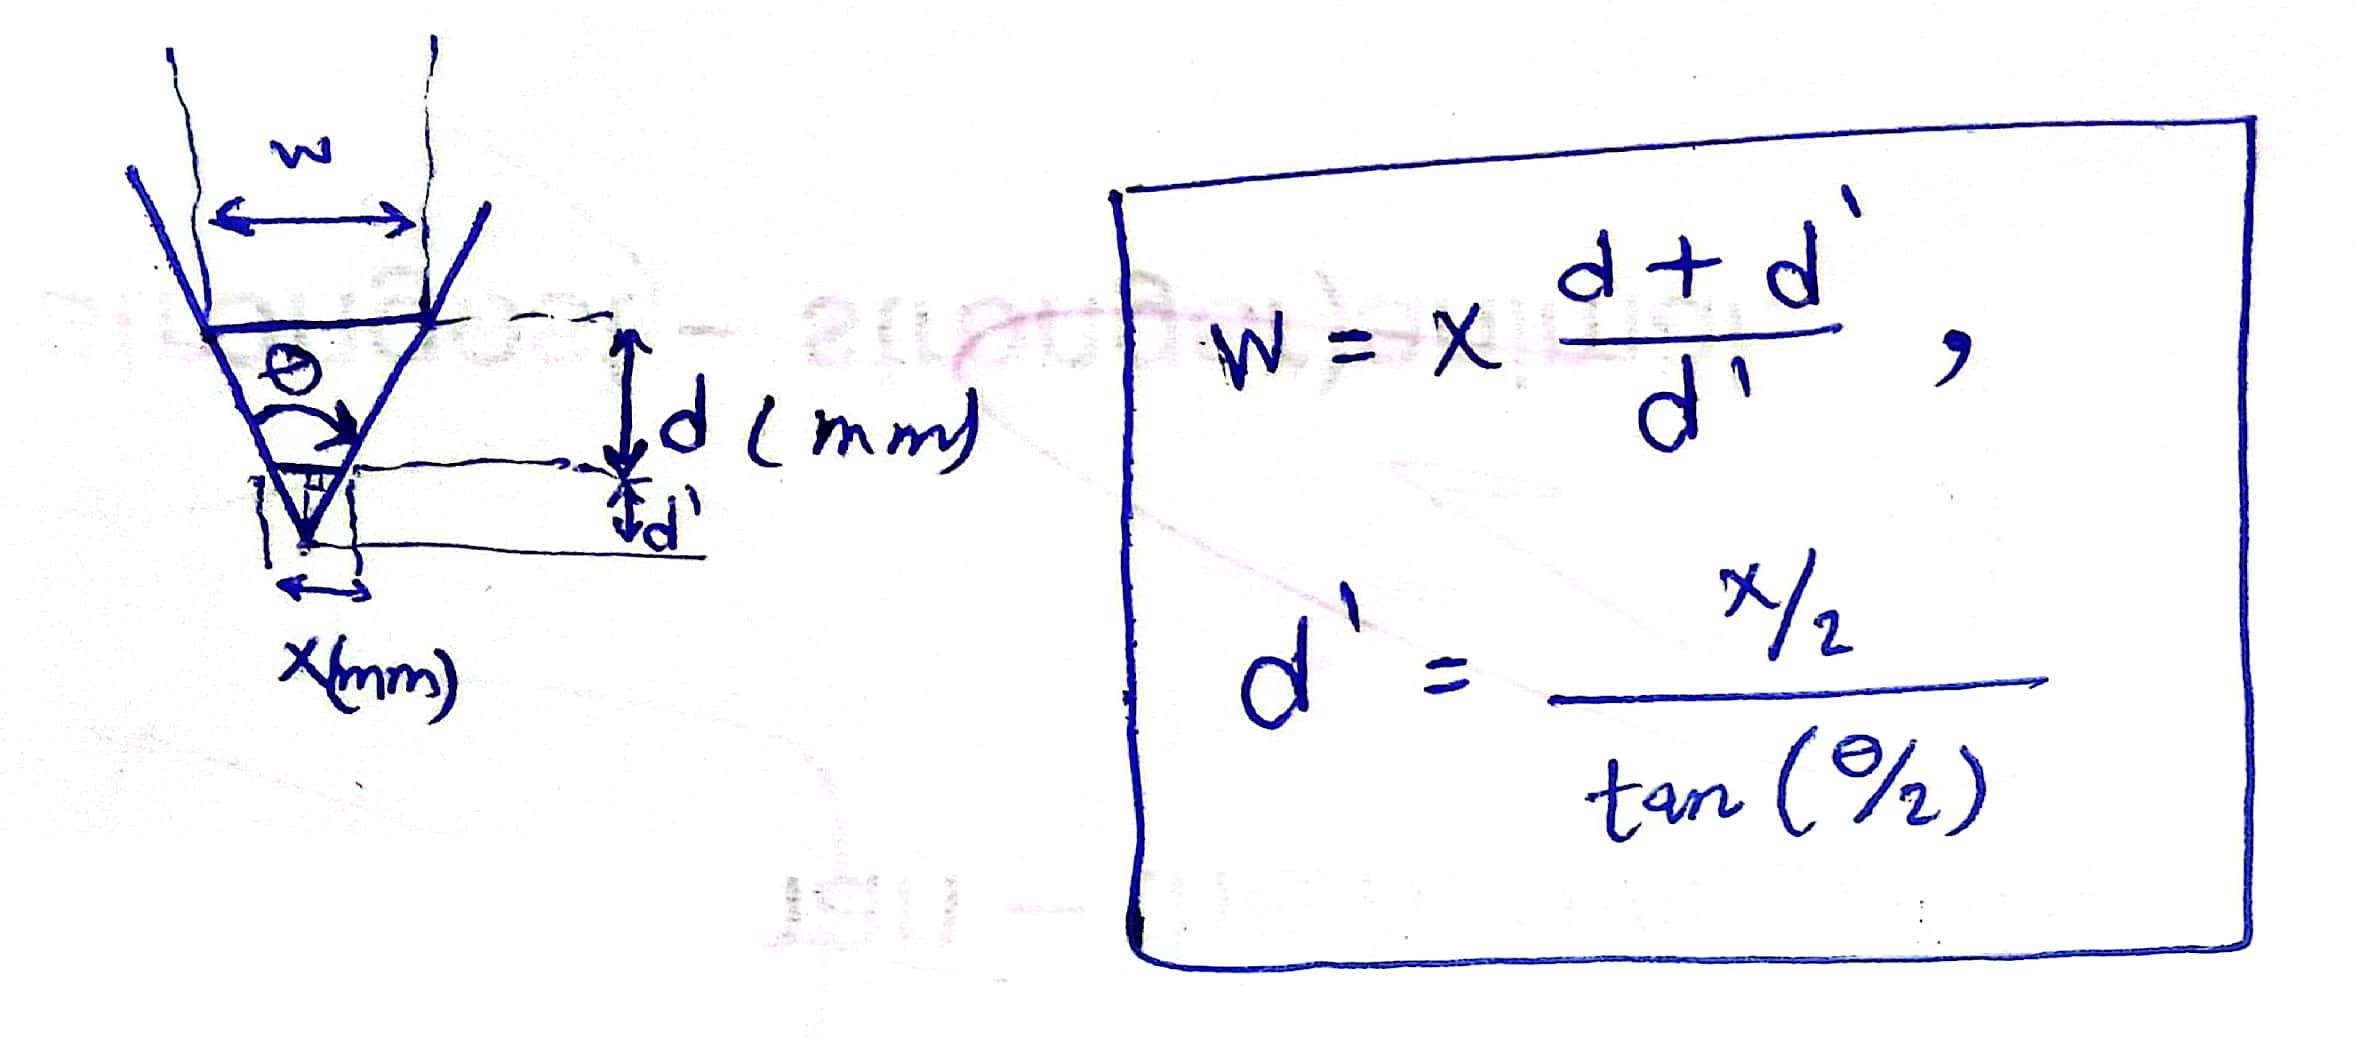 w
θ
d (mm)
d'
x(mm)
w = x (d + d') / d' ,
d' = (x/2) / tan (θ/2)